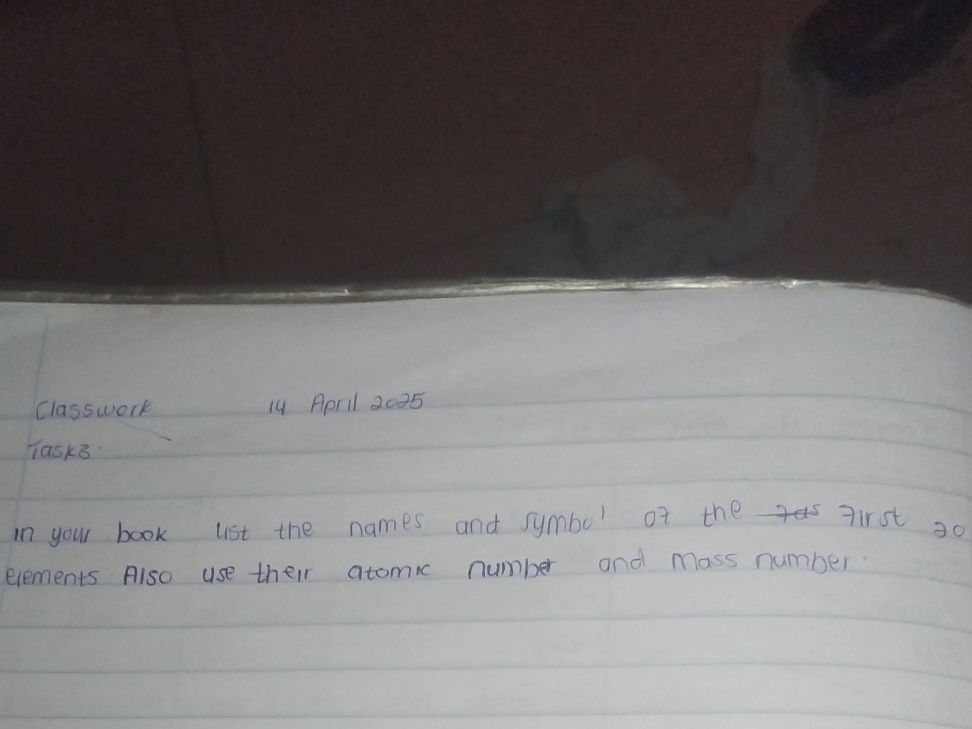 Classwork 14 April 2025
Task3.
In your book list the names and symbol of the first 20
elements Also use their atomic number and Mass number.